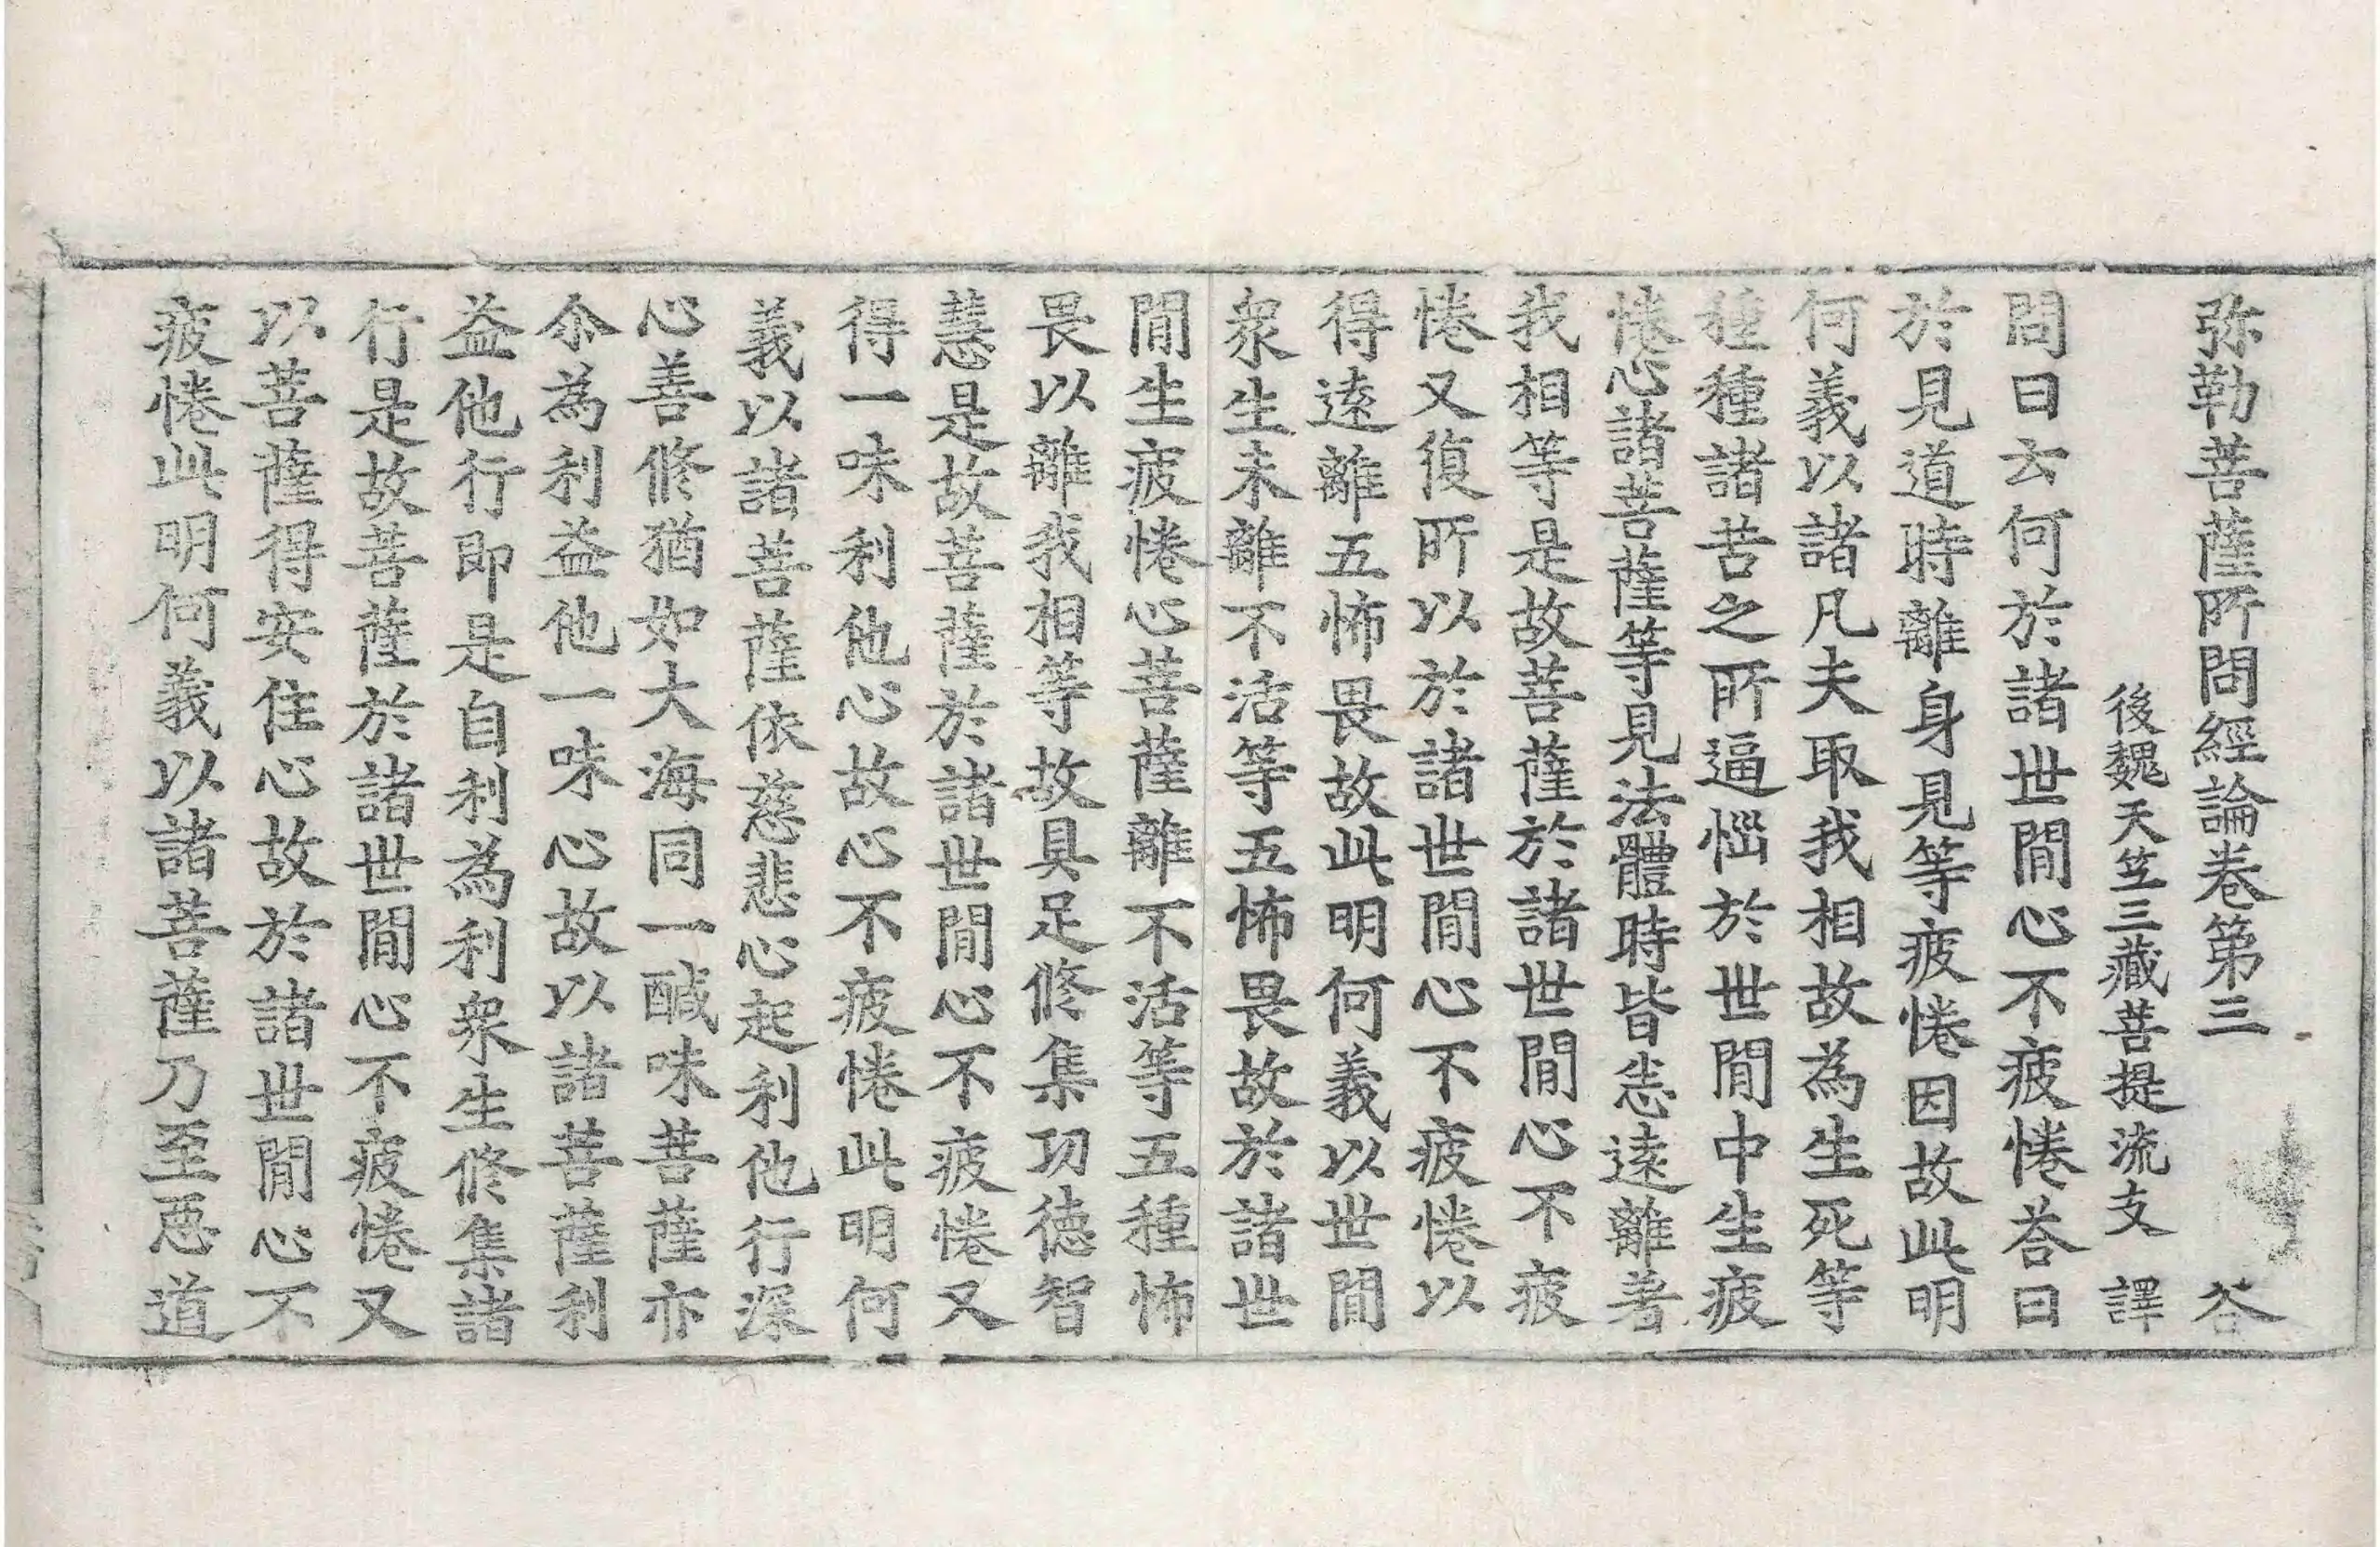 弥勒菩薩所問經論卷第三 荅
後魏天竺三藏菩提流支 譯
問曰云何於諸世間心不疲惓荅曰
於見道時離身見等疲惓因故此明
何義以諸凡夫取我相故為生死等
種種諸苦之所逼惱於世間中生疲
惓心諸菩薩等見法體時皆悉遠離著
我相等是故菩薩於諸世間心不疲
惓又復所以於諸世間心不疲惓以
得遠離五怖畏故此明何義以世間
衆生未離不活等五怖畏故於諸世
間生疲惓心菩薩離不活等五種怖
畏以離我相等故具足修集功德智
慧是故菩薩於諸世間心不疲惓又
得一味利他心故心不疲惓此明何
義以諸菩薩依慈悲心起利他行深
心善修猶如大海同一醎味菩薩亦
尒為利益他一味心故以諸菩薩利
益他行即是自利為利衆生修集諸
行是故菩薩於諸世間心不疲惓又
以菩薩得安住心故於諸世間心不
疲惓此明何義以諸菩薩乃至惡道